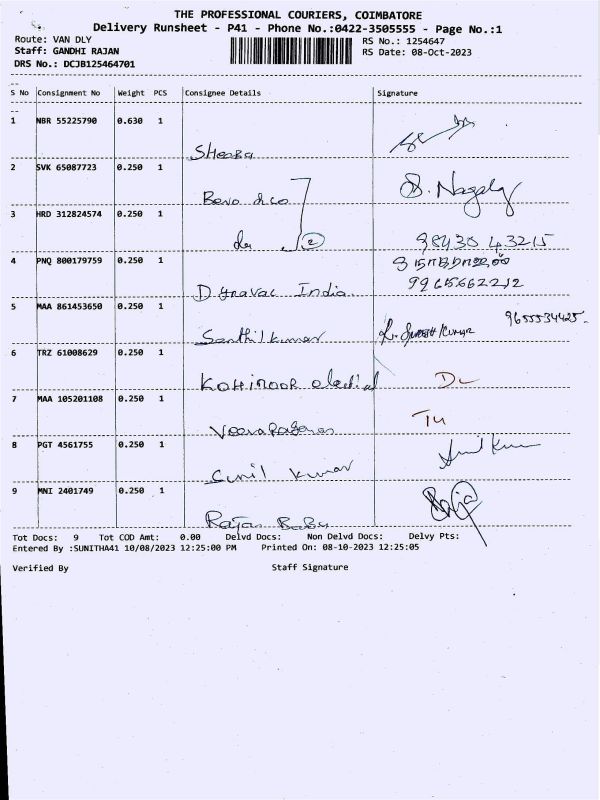 THE PROFESSIONAL COURIERS, COIMBATORE
Delivery Runsheet - P41 - Phone No.:0422-3505555 - Page No.:1
Route: VAN DLY
RS No.: 1254647
Staff: GANDHI RAJAN
RS Date: 08-Oct-2023
DRS No.: DCJB125464701
S No Consignment No Weight PCS Consignee Details Signature
1 NBR 55225790 0.630 1
Sheeba
2 SVK 65087723 0.250 1
S. Nagaly
3 HRD 312824574 0.250 1
do 2 98430 43215
4 PNQ 800179759 0.250 1
9965662212
Dynavac India
5 MAA 861453650 0.250 1
9655534425
Senthil kumar
6 TRZ 61008629 0.250 1
KOHINOOR
7 MAA 105201108 0.250 1
8 PGT 4561755 0.250 1
Sunil Kumar
9 MNI 2401749 0.250 1
Rajan Babu
Tot Docs: 9 Tot COD Amt: 0.00 Delvd Docs: Non Delvd Docs: Delvy Pts:
Entered By :SUNITHA41 10/08/2023 12:25:00 PM Printed On: 08-10-2023 12:25:05
Verified By Staff Signature